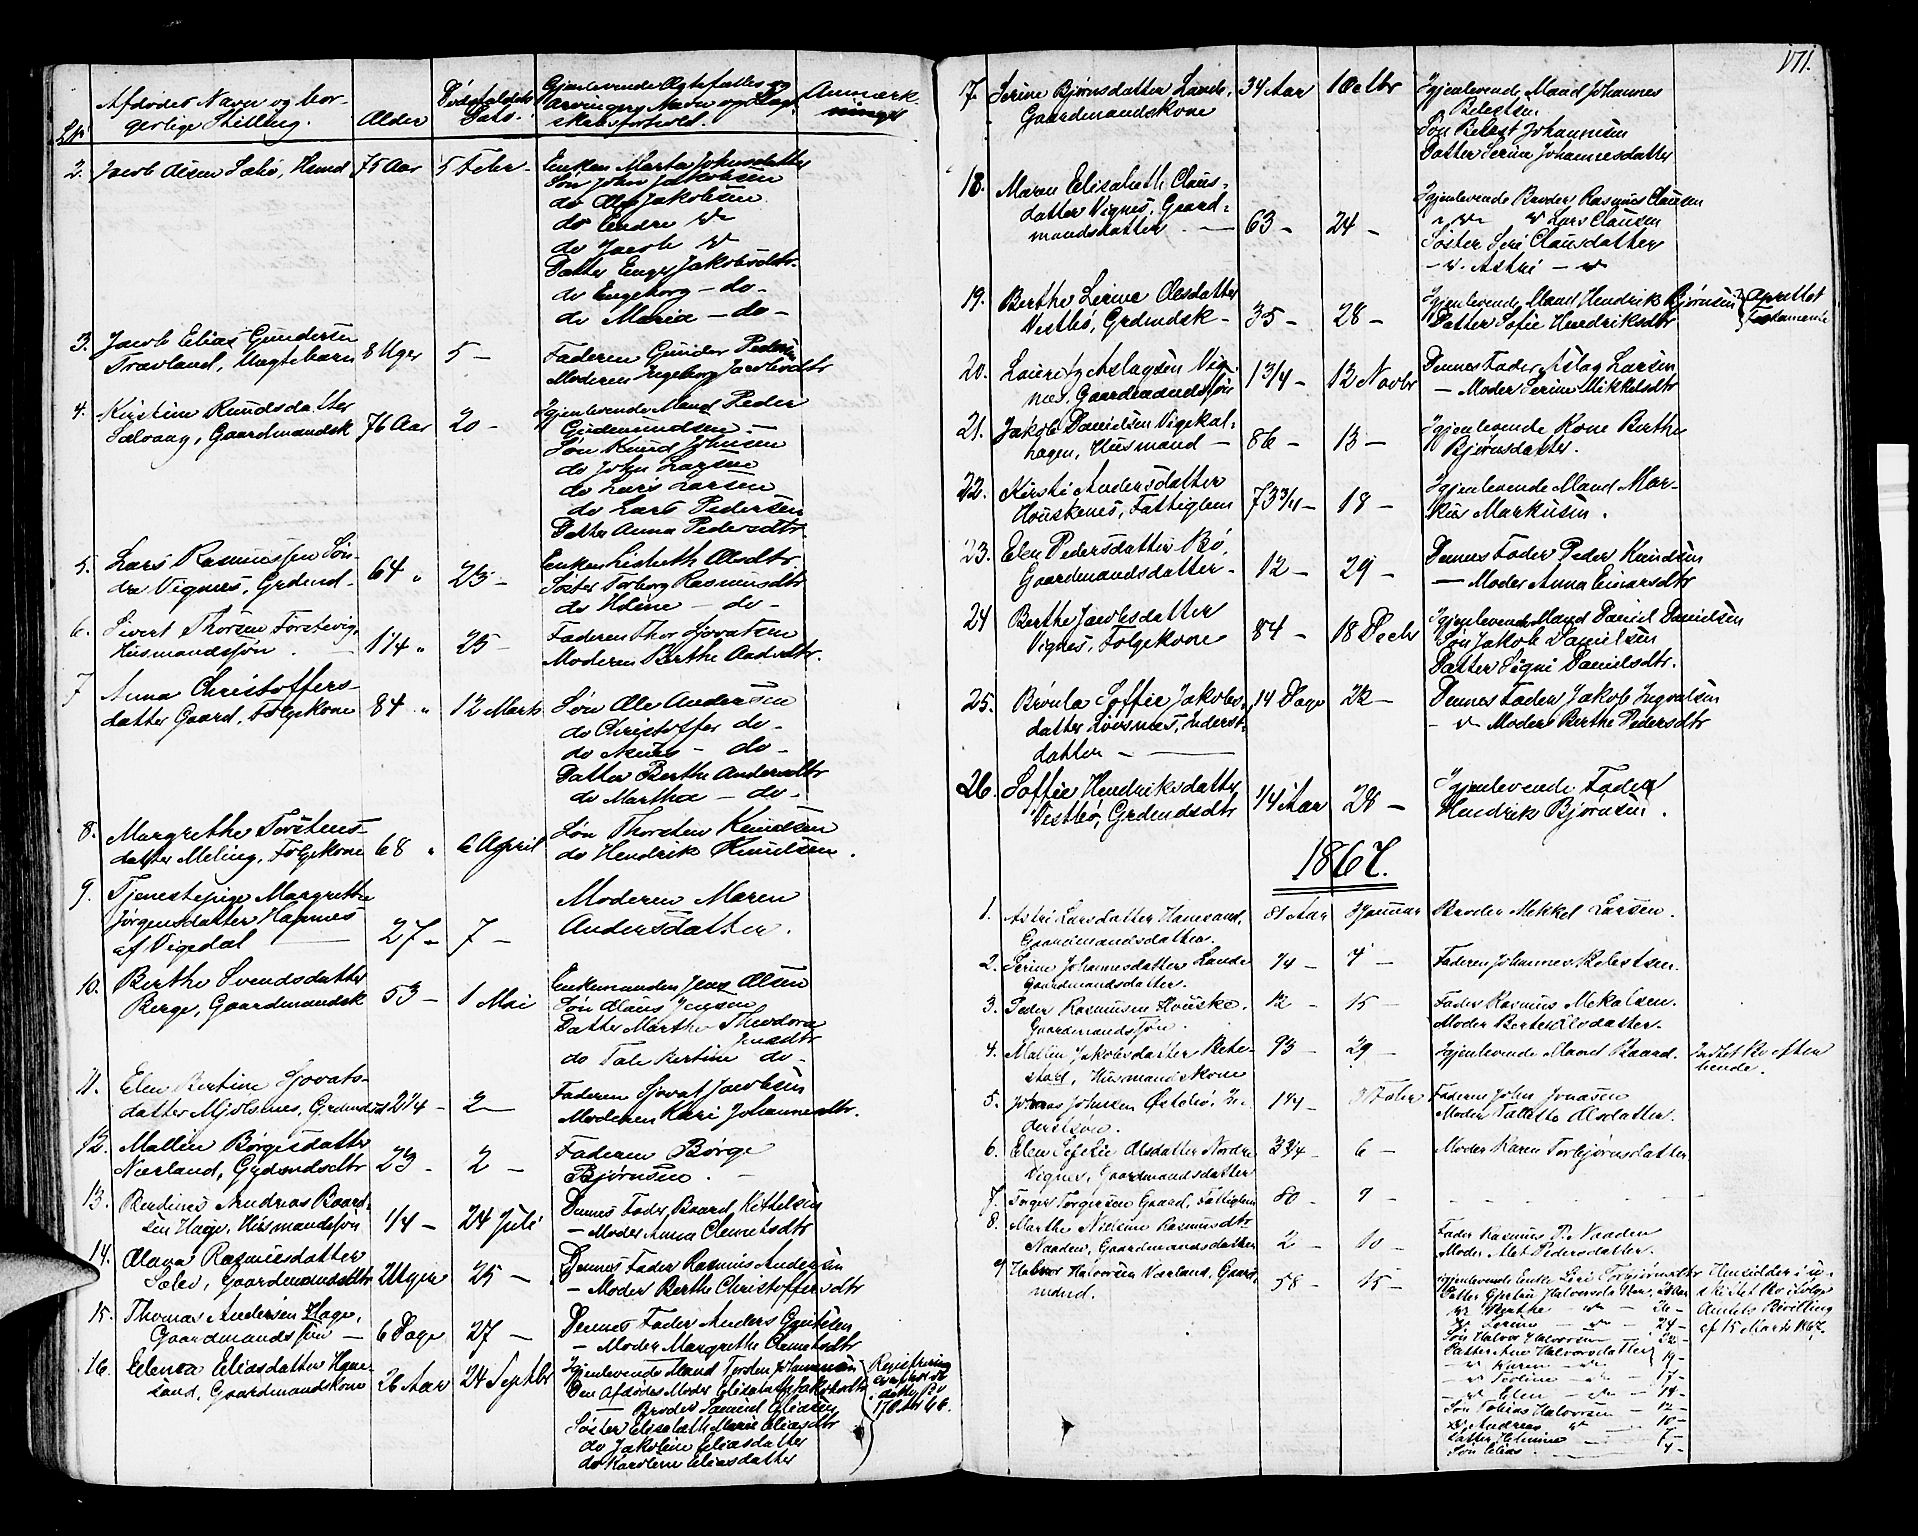 171.
No
Afdødes Navn og bor-
gerlige Stilling.
Alder
Dødsfaldets
Dato.
Gjenlevende Ægtefælles og
Arvingers Navn og Slægt-
skabsforhold.
Anmærk-
ninger
2. Jacob Olsen Sæbø, Husmd 75 Aar 5 Febr. Enken Marta Johnsdatter
Søn John Jakobsen
do Ole Jakobsen
do Endre do
do Jacob do
Datter Inger Jakobsdtr.
do Engeborg - do -
do Maria - do -
3. Jacob Elias Gundersen
Travland, Uægtebarn 8 Uger 5 - Faderen Gunder Pedersen
Moderen Ingeborg Jacobsdtr
4. Kirstine Knudsdatter
Salvaag, Gaardmandsk 76 Aar 20 - Igjenlevende Mand Peder
Gudmundsen -
Søn Knud Johnsen
do John Larsen
do Lars Larsen
do Lars Pedersen
Datter Anna Pedersdtr
5. Lars Rasmussen Søn-
dre Vignes, Grdmd - 64 " 23 - Enken Lisbeth Olsdtr.
Søster Torborg Rasmusdtr
do - do -
6. Sivert Thorsen Førstevig,
Husmandssøn - 1 1/4 " 25 - Faderen Thor Sjovatsen
Moderen Berthe Andersdtr.
7 Anna Christoffers-
datter Gaard, Følgekone 84 " 12 Marts Søn Ole Andersen
do Christoffer do -
do - do -
Datter Berthe Andersdtr
do Martha - do -
8. Margrethe Torstens-
datter Meling, Følgekone 68 " 6 April Søn Thorsten Knudsen
do Hendrik Knudsen.
9. Tjenestepige Margrethe
Jørgensdatter Hapnes
af Vigedal - 27 - 7 - Moderen Maren
Andersdatter.
10. Berthe Svendsdatter
Berge, Gaardmandsk 53 - 1 Mai Enkemanden Jens Olsen
Søn Olaus Jensen
Datter Marthe Theodora
Jensdtr
do Tale Bertine do -
11. Elen Bertine Sjovats-
datter Mjølsnes, Grdmdsd 2 1/4 - 2 - Faderen Sjovat Jacobsen
Moderen Kari Johannesdtr.
12. Mallin Børgesdatter
Nærland, Grdmdsdtr 23 - 2 - Faderen Børge
Bjørnsen. -
13. Andreas Baard-
sen Hage, Husmandssøn 1/4 - 24 Juli Dennes Fader, Baard Kittelsen
- Moder Anna Clemetsdtr
14. Olava Rasmusdatter
Gaardmandsdtr 7 Uger 25 - Dennes Fader Rasmus Andersen
- Moder Berthe Christoffersdtr
15. Thomas Andersen Hage,
Gaardmandssøn - 6 Dage 27 - Dennes Fader Anders
- Moder Margrethe Clemetsdtr
16. Elenea Eliasdatter Hane-
sand, Gaardmandskone 26 Aar 24 Septbr Igjenlevende Mand Torden Johannesen
Den Afdødes Moder Elisabeth Jakobsdtr
- Broder Samuel Eliasen
Søster Elisabeth Marie Eliasdtr
do Jakobine Eliasdatter
do Karolene Eliasdatter
Registrering
17 Oct 66.
7. Serine Bjørnsdatter Lande, 34 Aar 1 Octbr Igjenlevende Mand Johannes
Gaardmandskone Belestsen
Søn Belest Johannesen
Datter Serine Johannesdatter
18. Maren Elisabeth Claus-
datter Vignes, Gaard-
mandsdatter. - 63 - 24 - Igjenlevende Broder Rasmus Clausen
do Lars Clausen
Søster Siri Clausdatter
- do Astri - do
19. Berthe Serine Olsdatter
Vestbø, Grdmdsk - 35 - 28 - Igjenlevende Mand Hendrik Bjørnsen
Datter Sofie Hendriksdtr
Oprettet
Testamente
20. Lauritz Aslagsen Vig-
nes. Gaardmandssøn 1 3/4 - 12 Novbr Dennes Fader Aslag Larsen
- Moder Serine Mikkelsdtr
21. Jakob Danielsen Vigekal-
hagen, Husmand - 86 - 13 - Igjenlevende Kone Berthe
Bjørnsdatter.
22. Kirsti Andersdatter
Houskenes, Fattiglem 73 3/4 - 18 - Igjenlevende Mand Mar-
kus Markusen.
23. Elen Pedersdatter Bø,
Gaardmandsdatter - 12 - 29 - Dennes Fader Peder Knudsen
- Moder Anna Einarsdtr
24 Berthe Jacobsdatter
Vignes, Følgekone 84 - 18 Decbr Igjenlevende Mand Daniel Danielsen
Søn Jakob Danielsen
Datter Signi Danielsdtr.
25. Brønla Soffie Jakobs-
datter Løvsnæs, Inderst-
datter - 14 Dage 22 - Dennes Fader Jakob Ingvalsen
- do Moder Berthe Pedersdtr
26. Soffie Hendriksdatter
Vestbø, Grdmdsdtr 1/4 Aar 28 - Igjenlevende Fader
Hendrik Bjørnsen.
1867.
1. Astri Larsdatter Hanesand, 81 Aar 3 Januar Broder Mekkel Larsen.
Gaardmandsdatter.
2. Serine Johannesdatter Lande 1/4 - 4 - Faderen Johannes Belestsen.
Gaardmandsdatter.
3. Peder Rasmusen Houske. 12 - 15 - Fader Rasmus Mekalsen.
Gaardmandssøn. Moder Berte Olsdatter.
4. Mallen Jakobsdatter Bete-
stad, Husmandskone 93 - 29 - Igjenlevende Mand Baard. Indtet Bo efter
hende.
5. Johnas Johnsen Østebø, In-
derstsøn. 1 1/4 - 3 Febr Faderen John Jonasen
Moder Tallette Olsdatter.
6. Elen Sefeie Olsdatter Nordre
Vignes, Gaardmandsdatter 3 3/4 - 6 - Moder Karen Torbjørnsdatter
7. Inger Torgersen Gaard, Fattiglem 80 - 9 - - - - -
8. Marthe Nielsine Rasmusdtr
Naaden, Gaardmandsdatter 2 - 10 - Fader Rasmus P. Naaden
Moder Met Pedersdatter.
9 Halvor Halvorsen Nærland, Gaard-
mand. 58 - 15 - Igjenlevende Enke Siri Torbjørnsdtr
Datter Gjertine Halvorsdtr
do Berthe - do - 26 -
do Serine - do - 24 -
Søn Halvor Halvorsen - 22 -
Datter Ane Halvorsdatter 19 -
- do Karen - do -
- do Teoline - do - 17 -
- do Elen - do - 14 -
Søn Tobias Halvorsen - 12 -
do Andreas do - 10 -
Datter Helmine - 7 -
Søn Elias - 4 -
Hensidder i u-
skiftet Bo ifølge
Amtets Bevilling
af 15 Marts 1867.